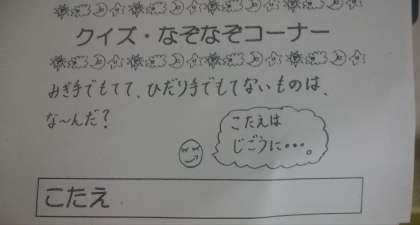 クイズ・なぞなぞコーナー
みぎ手でもてて、ひだり手でもてないものは、
な〜んだ？
こたえは
じごうに・・・。
こたえ